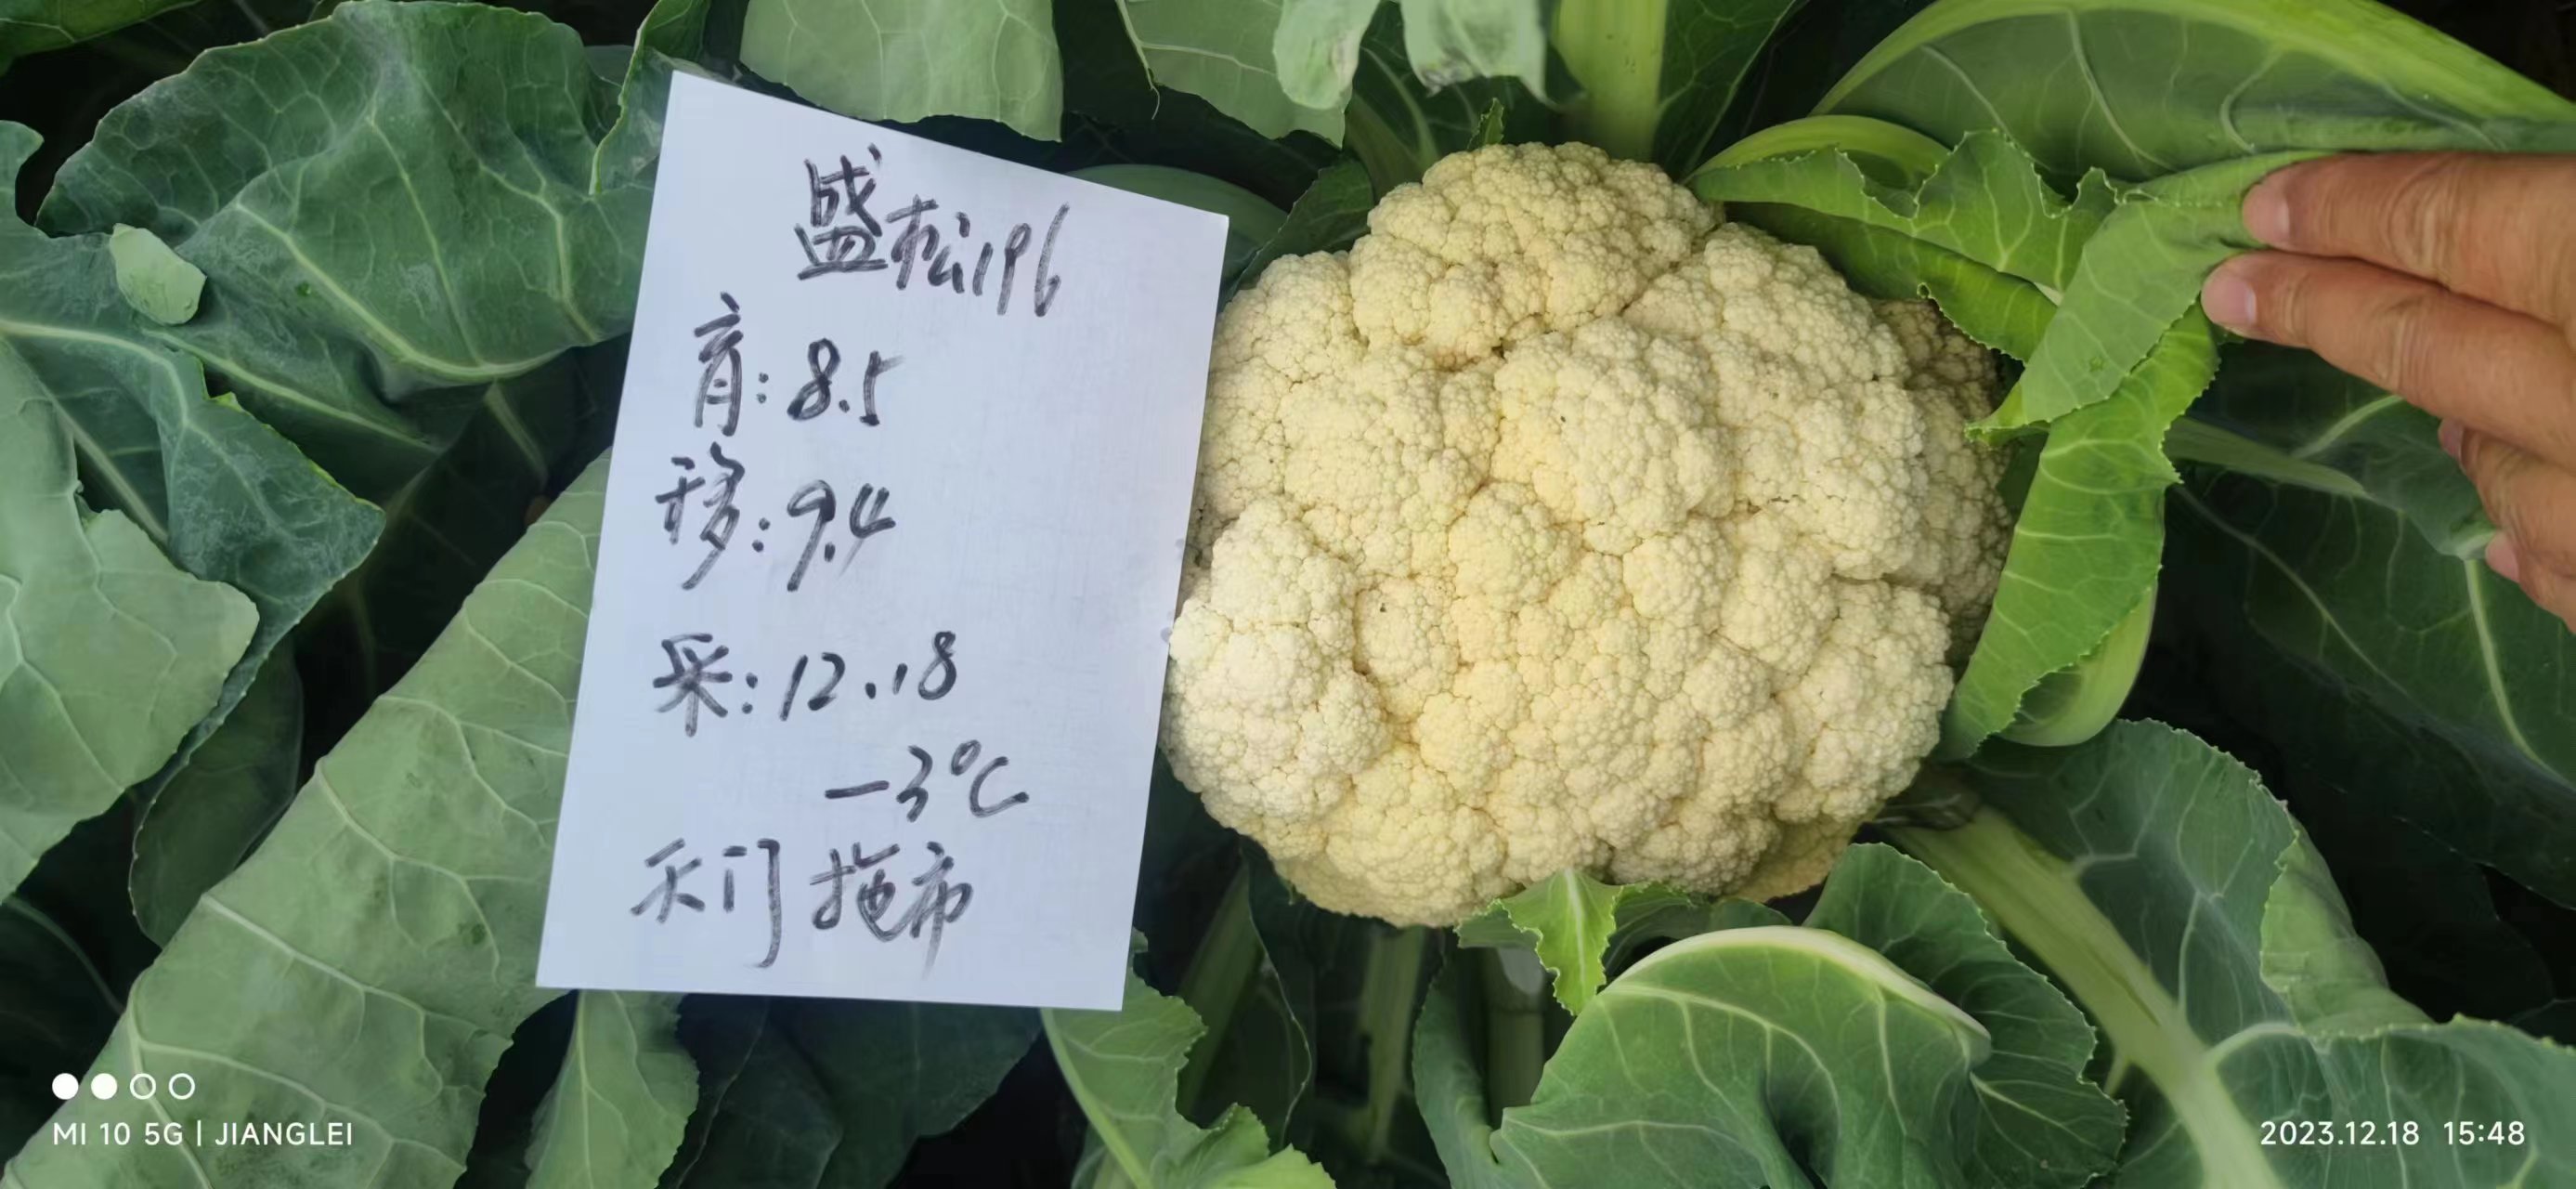 盛松196
育:8.5
移:9.4
采:12.18
-3℃
天门拖市
MI 10 5G | JIANGLEI
2023.12.18 15:48